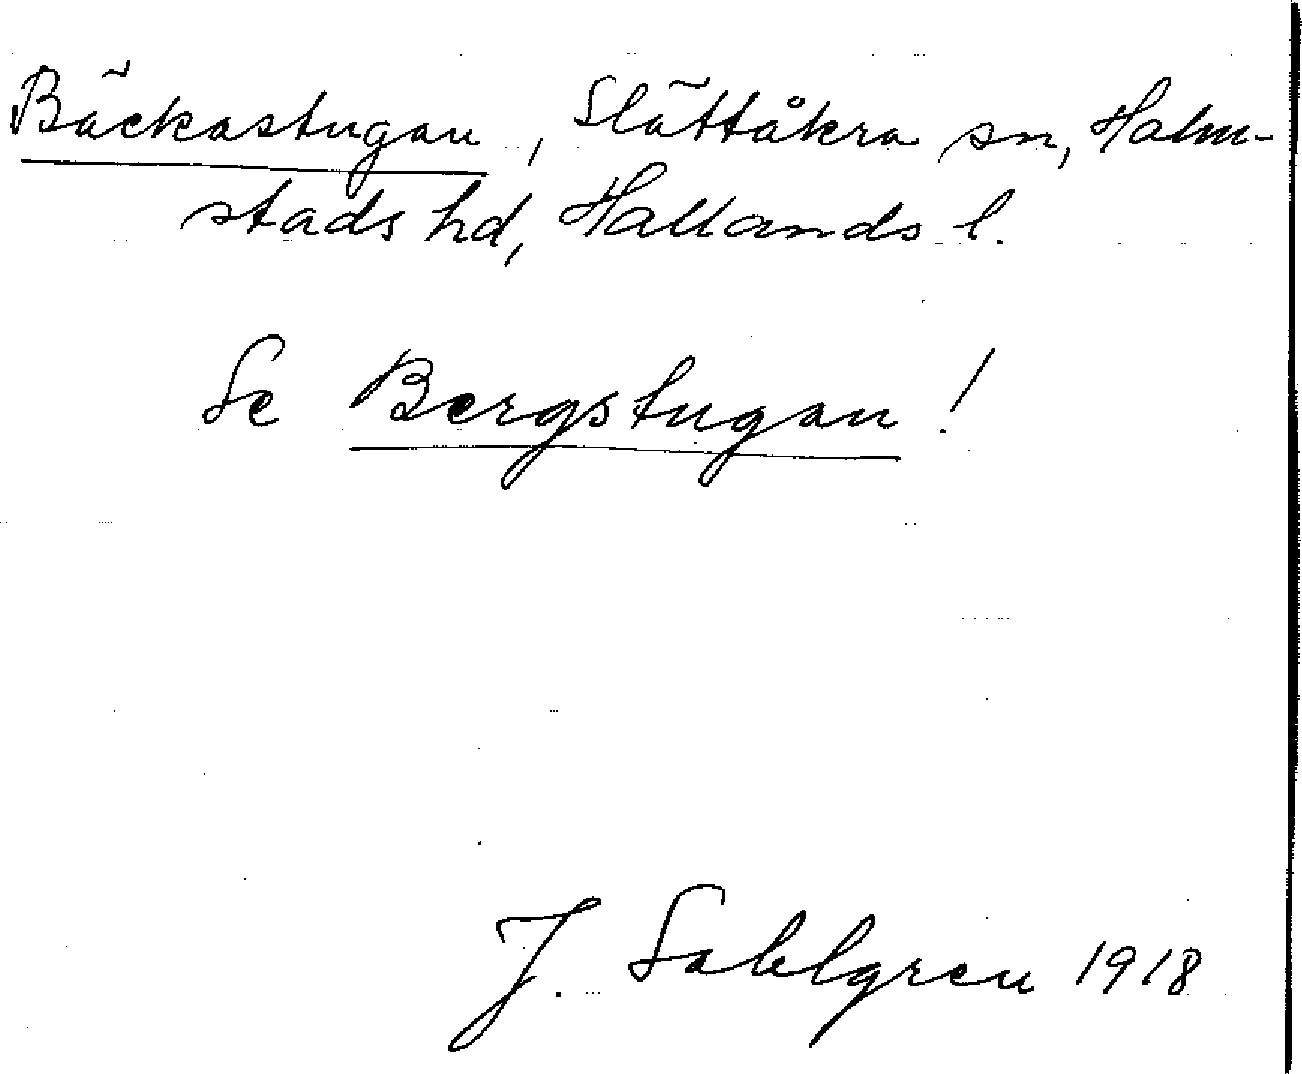 Bäckastugan, Slättåkra sn, Halm-
stads hd, Hallands l.
Se Bergstugan!
J. Sahlgren 1918